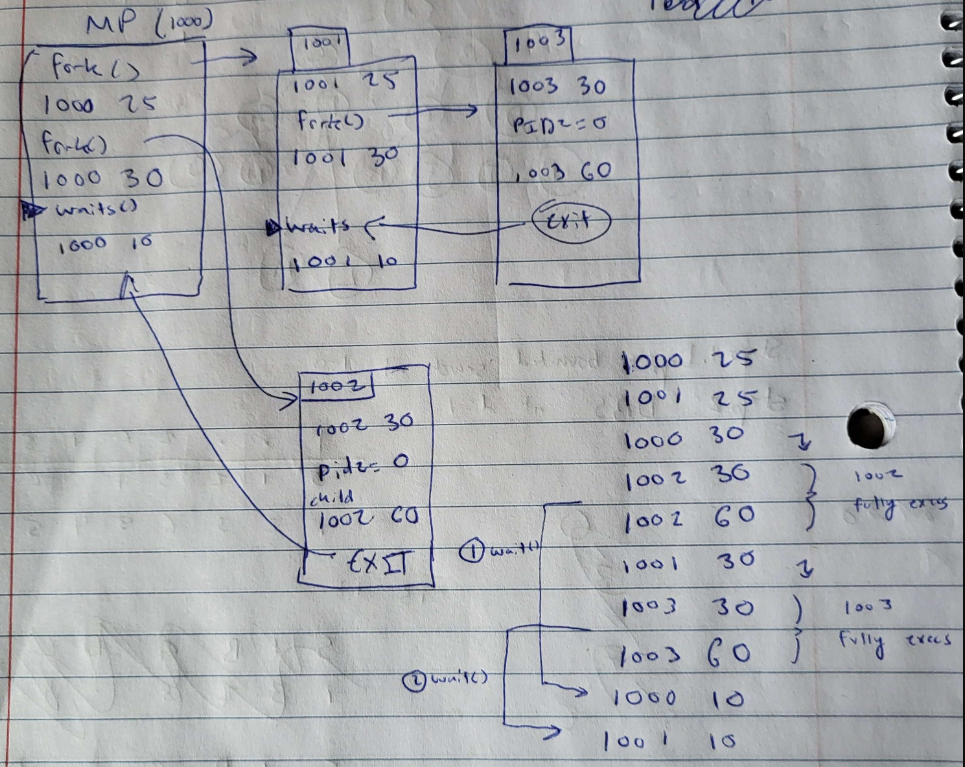 MP (1000)
fork()
1000 25
fork()
1000 30
waits()
1000 10
1001
1001 25
fork()
1001 30
waits
1001 10
1003
1003 30
PID2=0
1003 60
Exit
1002
1002 30
pid2= 0
child
1002 60
EXIT
1000 25
1001 25
1000 30
1002 30
1002 60
1002
fully execs
1001 30
1003 30
1003 60
1003
fully execs
1000 10
1001 10
① wait()
② wait()